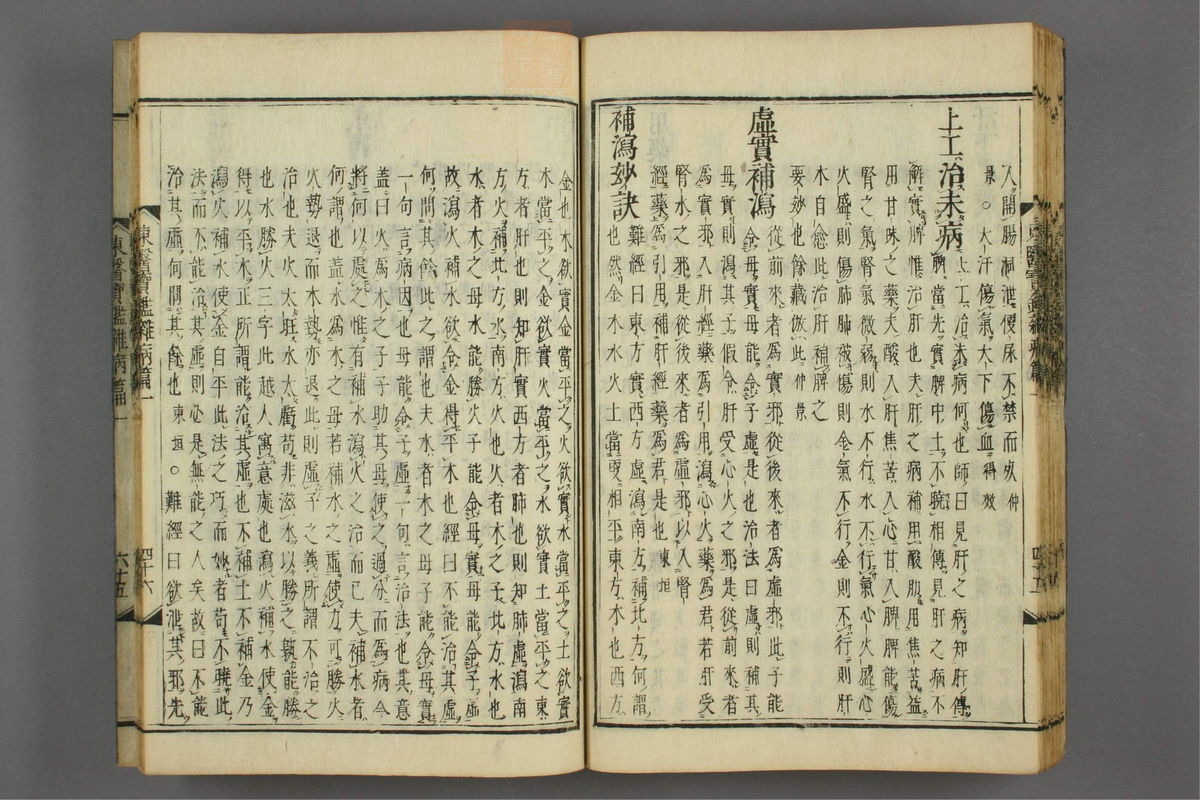 入開腸洞泄便尿不禁而死仲
景○大汗傷氣大下傷血得效
上工治未病
上工治未病何也師曰見肝之病知肝傳
脾當先實脾中土不曉相傳見肝之病不
解實脾惟治肝也夫肝之病補用酸助用焦苦益
用甘味之藥夫酸入肝焦苦入心甘入脾脾能傷
腎之氣腎氣微弱則水不行水不行氣心火盛心
火盛則傷肺肺被傷則金氣不行金則不行則肝
木自愈此治肝補脾之
要妙也餘藏倣此仲景
虛實補瀉
從前來者爲實邪從後來者爲虛邪此子能
令母實母能令子虛是也治法曰虛則補其
母實則瀉其子假令肝受心火之邪是從前來者
爲實邪入肝經藥爲引用瀉心火藥爲君若肝受
腎水之邪是從後來者爲虛邪以入腎
經藥爲引用補肝經藥爲君是也東垣
補瀉妙訣
難經曰東方實西方虛瀉南方補北方何謂
也然金木水火土當更相平東方木也西方
金也木欲實金當平之火欲實水當平之土欲實
木當平之金欲實火當平之水欲實土當平之東
方者肝也則知肝實西方者肺也則知肺虛瀉南
方火補北方水南方火也火者木之子北方水也
水者木之母水能勝火子能令母實母能令子虛
故瀉火補水欲令金得平木也經曰不能治其虛
何問其餘此之謂也夫水者木之母子能令母實
一句言病因也母能令子虛一句言治法也其意
蓋曰火爲木之子子助其母使之過分而爲病今
將何以處之惟有瀉火補水之治而已夫補水者
何謂也蓋水爲木之母若補水之虛使力可勝火
火勢退而木勢亦退此則虛子之義所謂不治之
治也夫火太旺水太虧苟非滋水以勝之孰能勝
也水勝火三字此越人寓意處也瀉火補水使金
得以平木正所謂能治其虛也不補土不補金乃
瀉火補水使金自平此法之巧而妙者苟不曉此
法而不能治其虛則心是無能之人矣故曰不能
治其虛何問其餘也東垣○難經曰欲泄其邪先
東醫寶鑑雜病篇一
四十六
東醫寶鑑雜病篇一
六十五